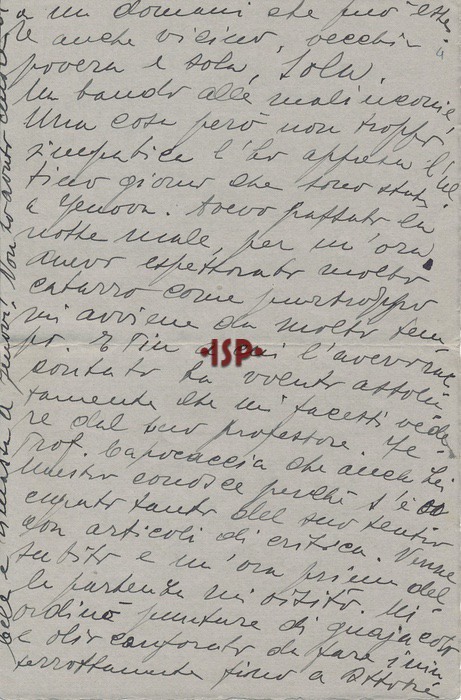 a un domani che può esse-
re anche vicino, vecchia
povera e sola, sola.
Un bando alle malinconie!
Una cosa però non troppo
simpatica l'ho appresa l'ul
timo giorno che sono stata
a Genova. Avevo passato la
notte male, per un'ora
avevo espettorato molto
catarro come purtroppo
mi avviene da molto tem
po. E Pin a cui l'avevo rac
contato ha voluto assolu
tamente che mi facessi vede
re dal suo professore. Il
Prof. Capocaccia che anche Lei
Maestro conosce perché s'è oc
cupato tanto del suo teatro
con articoli di critica. Venne
subito e un'ora prima del
la partenza mi visitò. Mi
ordinò punture di guajacolo
e olio canforato da fare inin
terrottamente fino a Ottobre
ISP